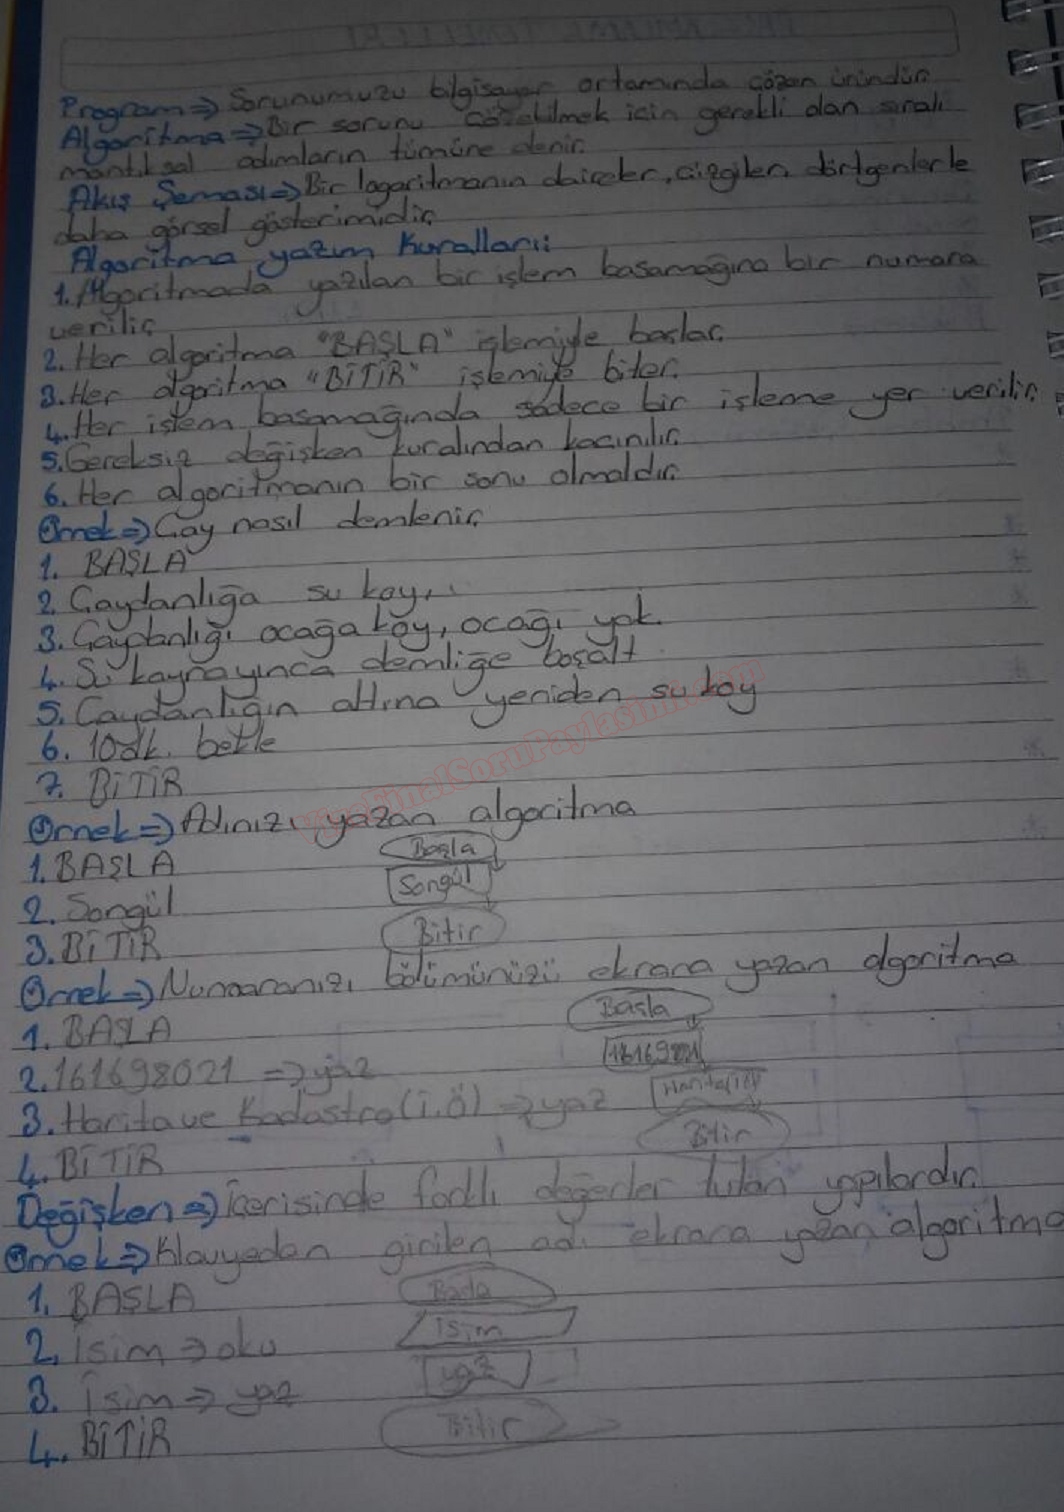 Program => Sorunumuzu bilgisayar ortamında çözen üründür.
Algoritma => Bir sorunu çözebilmek için gerekli olan sıralı
mantıksal adımların tümüne denir.
Akış Şeması => Bir logaritmanın daireler, çizgiler, dörtgenlerle
daha görsel gösterimidir.
Algoritma yazım Kuralları:
1. Algoritmada yazılan bir işlem basamağına bir numara
verilir.
2. Her algoritma "BAŞLA" işlemiyle başlar.
3. Her algoritma "BİTİR" işlemiyle biter.
4. Her işlem basamağında sadece bir işleme yer verilir.
5. Gereksiz değişken kuralından kaçınılır.
6. Her algoritmanın bir sonu olmaldır.
Örnek => Çay nasıl demlenir.
1. BAŞLA
2. Çaydanlığa su koy.
3. Çaydanlığı ocağa koy, ocağı yak.
4. Su kaynayınca demliğe boşalt.
5. Çaydanlığın altına yeniden su koy
6. 10dk. bekle
7. BİTİR
Örnek => Adınızı yazan algoritma
1. BAŞLA Başla
2. Songül Songül
3. BİTİR Bitir
Örnek => Numaranızı, bölümünüzü ekrana yazan algoritma
1. BAŞLA Başla
2. 161698021 => yaz 161698021
3. Harita ve Kadastro (İ.Ö) => yaz Harita(İÖ)
4. BİTİR Bitir
Değişken => İçerisinde farklı değerler tutan yapılardır.
Örnek => Klavyeden girilen adı ekrana yazan algoritma
1. BAŞLA Başla
2. İsim => oku İsim
3. İsim => yaz yaz
4. BİTİR Bitir